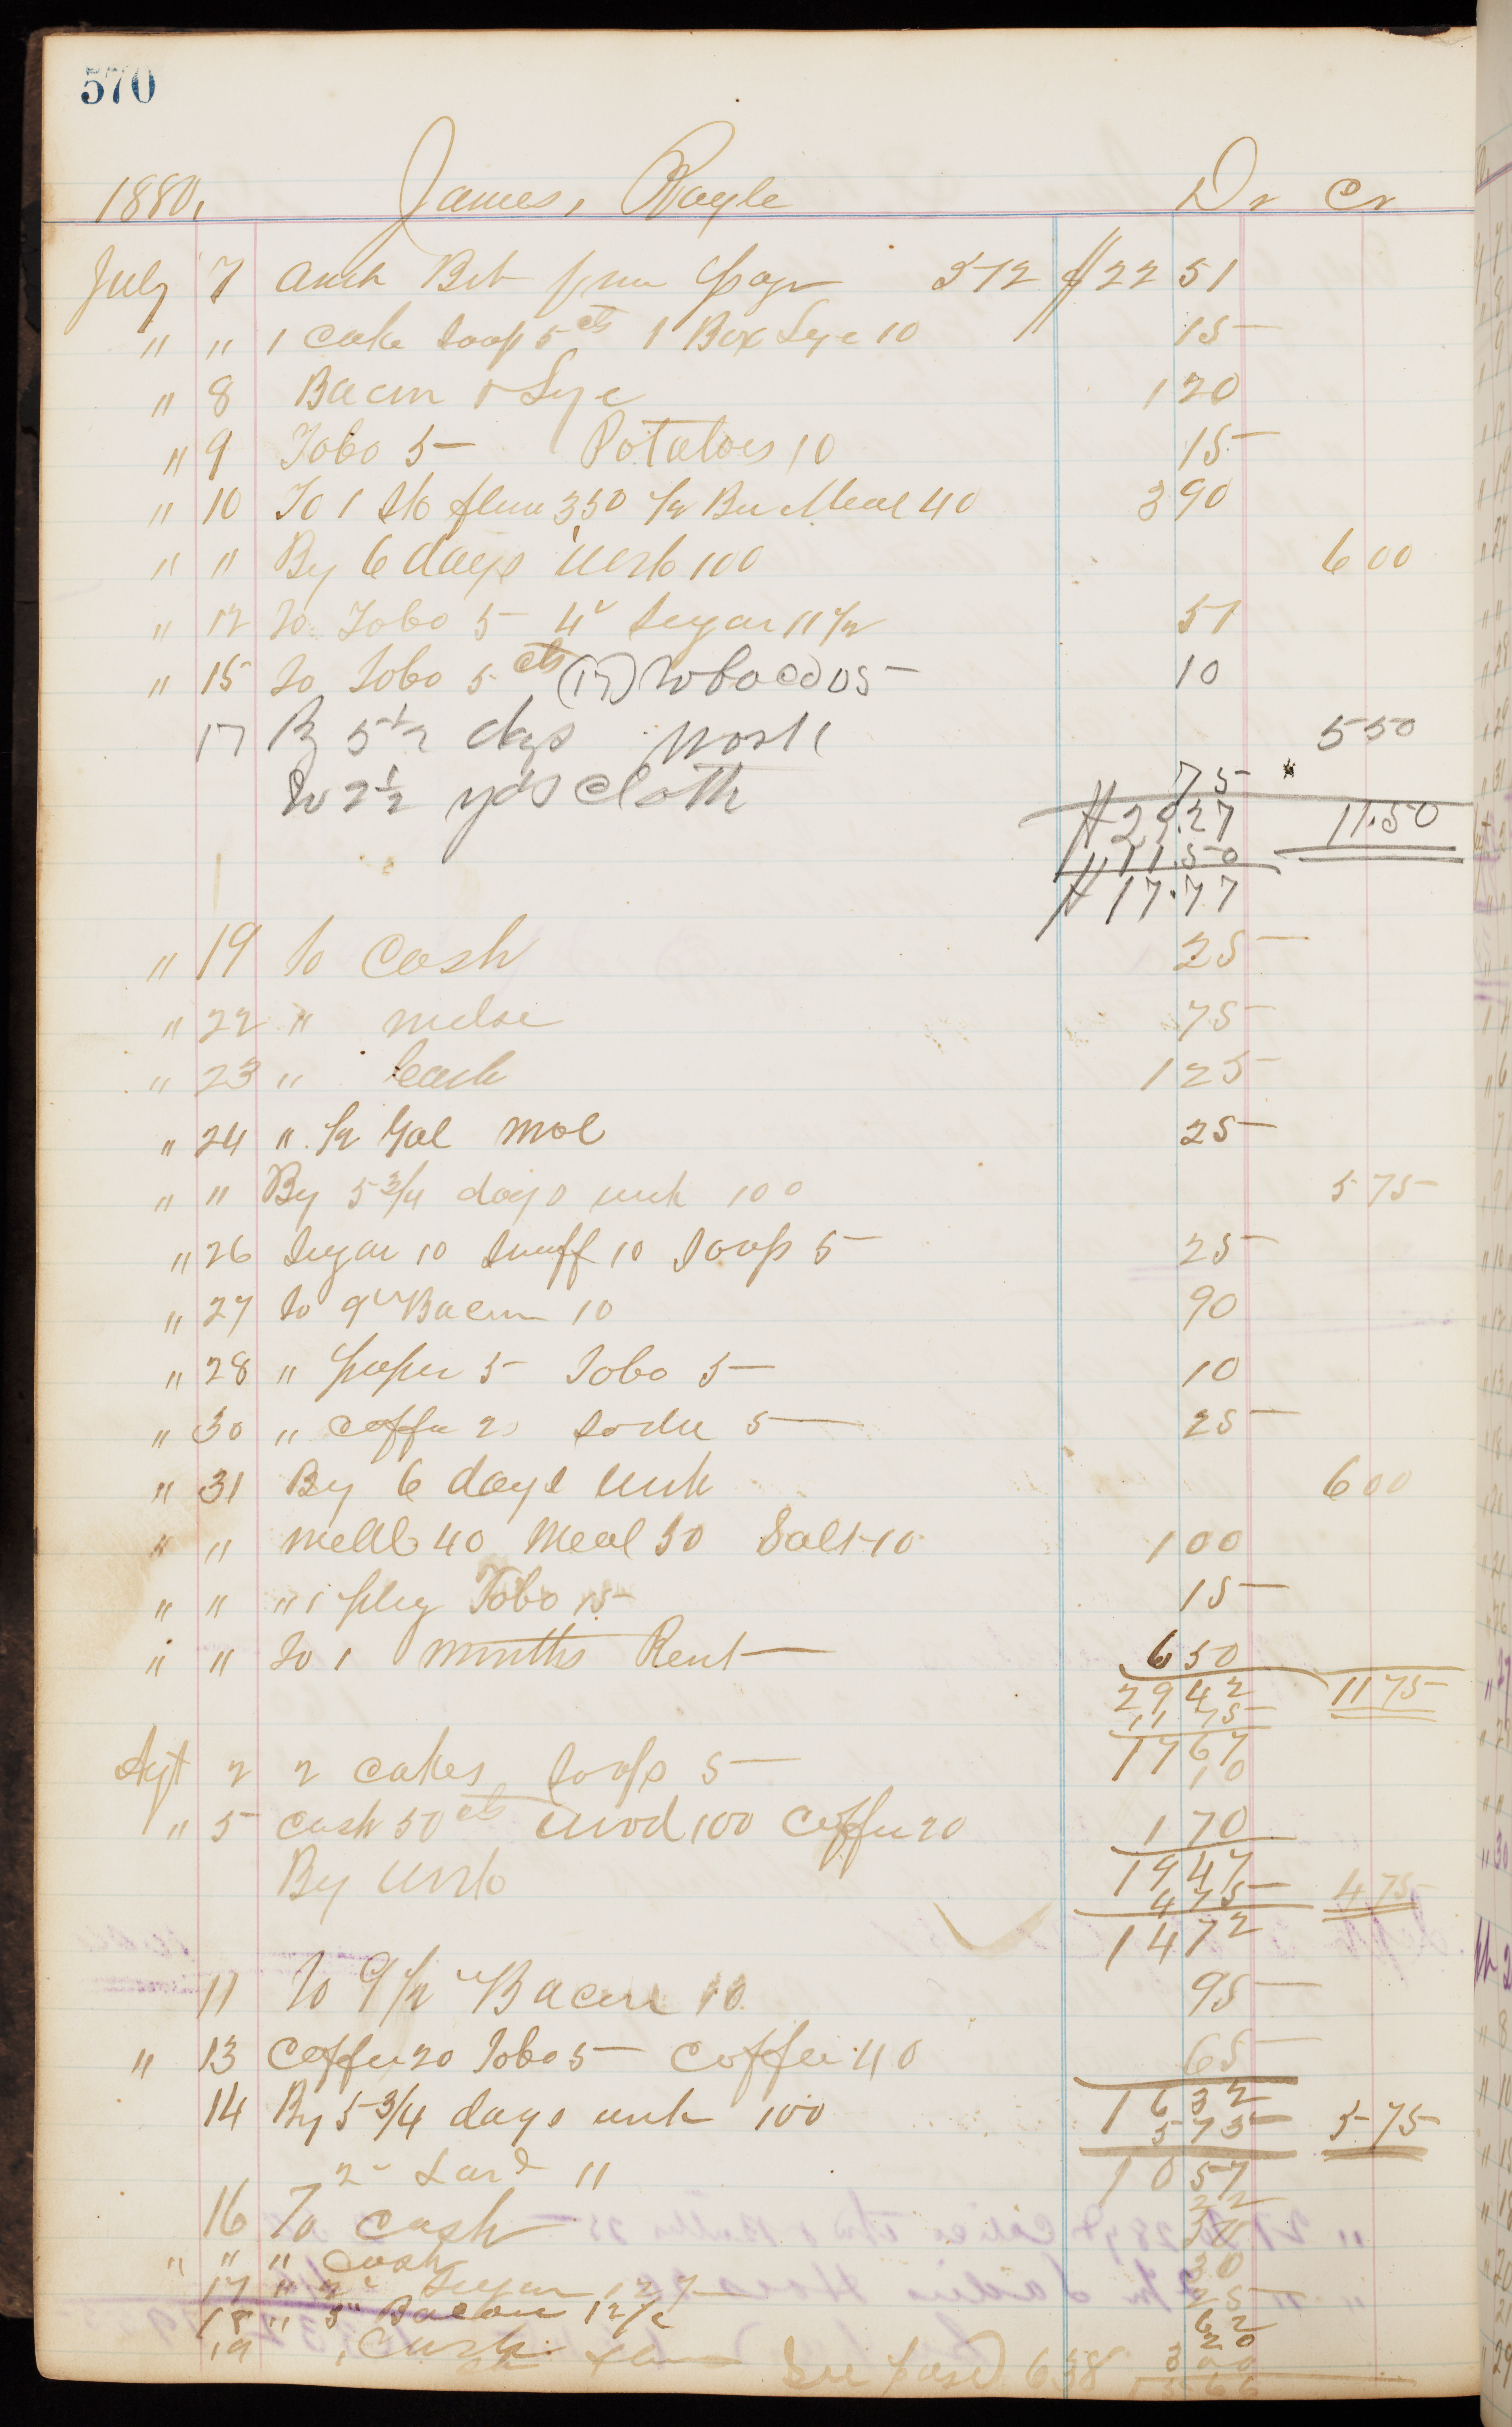 570
1880, James, Rayle Dr Cr
July 7 Amt Bct from page 572 $22 51
" " 1 cake Soap 5 cts 1 Box Lye 10 15
" 8 Bacon & Lye 1 20
" 9 Tobo 5 Potatoes 10 15
" 10 To 1 Sk flour 350 1/2 Bu Meal 40 3 90
" " By 6 days work 100 6 00
" 12 To Tobo 5 4 Sugar 11 1/2 51
" 15 To Tobo 5 cts (17) Tobacco 05 10
17 By 5 1/2 dys work 5 50
To 2 1/2 yds cloth 75
$29.27 11.50
11.50
$17.77
" 19 to Cash 25
" 22 " mdse 75
" 23 " Cash 1 25
" 24 " 1/2 Gal Mol 25
" " By 5 3/4 days work 100 5 75
" 26 Sugar 10 Snuff 10 Soap 5 25
" 27 to 9 Bacon 10 90
" 28 " paper 5 Tobo 5 10
" 30 " Coffee 20 Soda 5 25
" 31 By 6 days work 6 00
" " 40 Meal 50 Salt 10 1 00
" " " 1 plug Tobo 15 15
" " To 1 months Rent 6 50
29 42 11 75
11 75
17 67
Agt 2 2 cakes Soap 5 10
" 5 cash 50 cts wood 100 Coffee 20 1 70
19 47
By work 4 75 4 75
14 72
11 To 9 1/2 Bacon 10 95
" 13 Coffee 20 Tobo 5 Coffee 40 65
16 32
14 By 5 3/4 days work 100 5 75 5 75
10 57
2 Lard 11 22
16 To Cash 50
" " " Cash 30
17 " 2 Sugar 12 1/2 25
18 " 5 Bacon 12 1/2 62
19 , Cash 20
See page 638 3 00